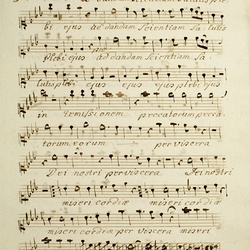 bi ejus ad dandam scientiam sa lutis
plebi ejus ad dandam scientiam sa
lutis plebi ejus ejus plebi ejus
in remissionem precatorum pecca
torum eorum per viscera
Dei nostri per viscera Dei nostri
miseri cordiæ miseri cordiæ
miseri cordiæ per viscera miseri